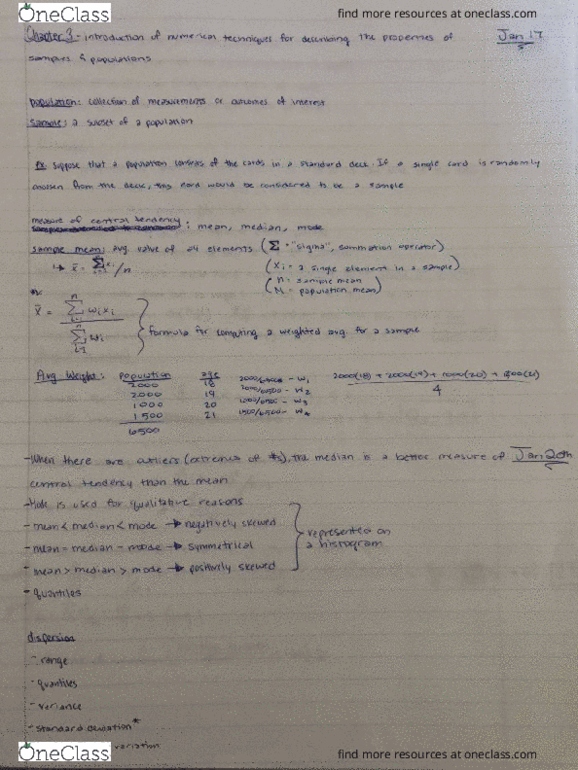 OneClass find more resources at oneclass.com
Chapter 3 - introduction of numerical techniques for describing the properties of Jan 17
samples & populations
population: collection of measurements or outcomes of interest
sample: a subset of a population
Ex. Suppose that a population consists of the cards in a standard deck. If a single card is randomly
chosen from the deck, this card would be considered to be a sample
measure of central tendency: mean, median, mode
sample mean: avg. value of all elements (Σ = "sigma", summation operator)
↳ x̄ = Σxi/n (xi = a single element in a sample)
(n = sample mean
M = population mean)
x̄ = Σ wixi / Σ wi } formula for computing a weighted avg. for a sample
Avg. Weight: population age
2000 18 2000/6500 - w1 2000(18) + 2000(19) + 1000(20) + 1500(21)
2000 19 2000/6500 - w2 4
1000 20 1000/6500 - w3
1500 21 1500/6500 - w4
6500
- When there are outliers (extremes of #s), the median is a better measure of Jan 20th
central tendency than the mean
- Mode is used for qualitative reasons
- mean < median < mode → negatively skewed
- mean = median = mode → symmetrical } represented on a histogram
- mean > median > mode → positively skewed
- quantiles
dispersion
- range
- quantiles
- variance
- standard deviation*
variation
OneClass find more resources at oneclass.com